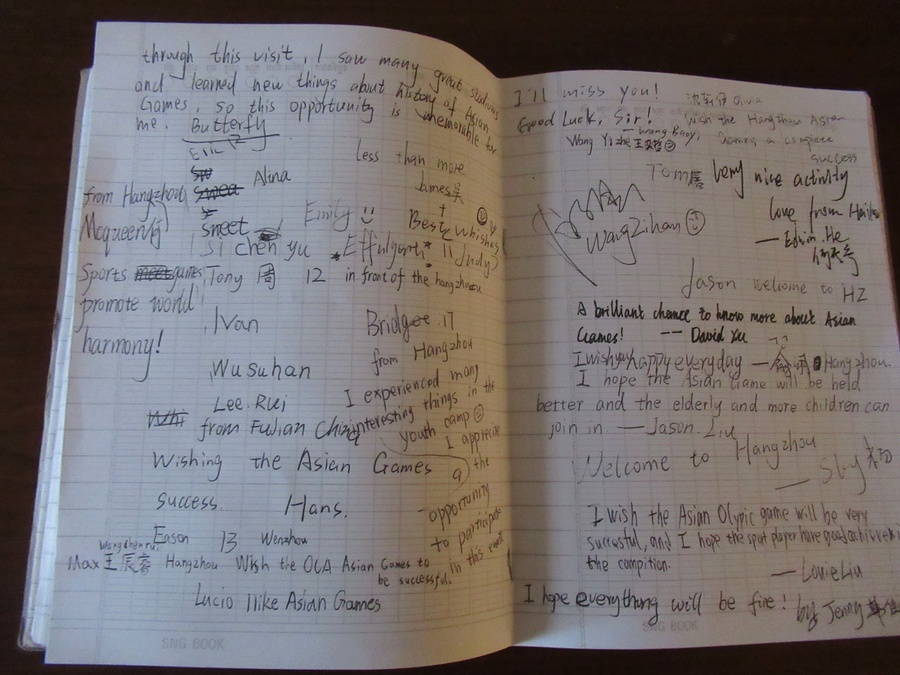 through this visit, I saw many great stadiums
and learned new things about history of Asian
Games, so this opportunity is memorable for
me. Butterfly
Eric
Alina
less than more
James
from Hangzhou
Emily
Best whishes
Judy
Mcqueen
sneet
Si chen yu
*Effulgent*
11
Sports games
Tony 周 12
in front of the hangzhou
promote world
harmony!
Ivan
Bridgee.17
from Hangzhou
Wu suhan
Lee.Rui
from FuJian China
I experienced many
interesting things in the
youth camp
Wishing the Asian Games
a
success. Hans.
I appreciate
the
opportunity
to participate
in this event
Eason 13 Wenzhou
Max 王辰睿 Hangzhou Wish the OCA Asian Games to
be successful.
Lucio I like Asian Games
SNG BOOK
I'll miss you!
Olivia
Good Luck, Sir!
Wish the Hangzhou Asian
— Wang Baoyi
Games a complete
success
Wang Yizhe
Tom
Very nice activity
love from
— Edwin.He
Wang Zihan
Jason welcome to HZ
A brilliant chance to know more about Asian
Games! —— David Xu
I wish you happy everyday — Hangzhou.
I hope the Asian Game will be held
better and the elderly and more children can
join in — Jason.Liu
Welcome to Hangzhou
— Sky
I wish the Asian Olypic game will be very
sucessful, and I hope the spot player have good
the compition.
— Louie Liu
I hope everything will be fine!
by Jenny
SNG BOOK